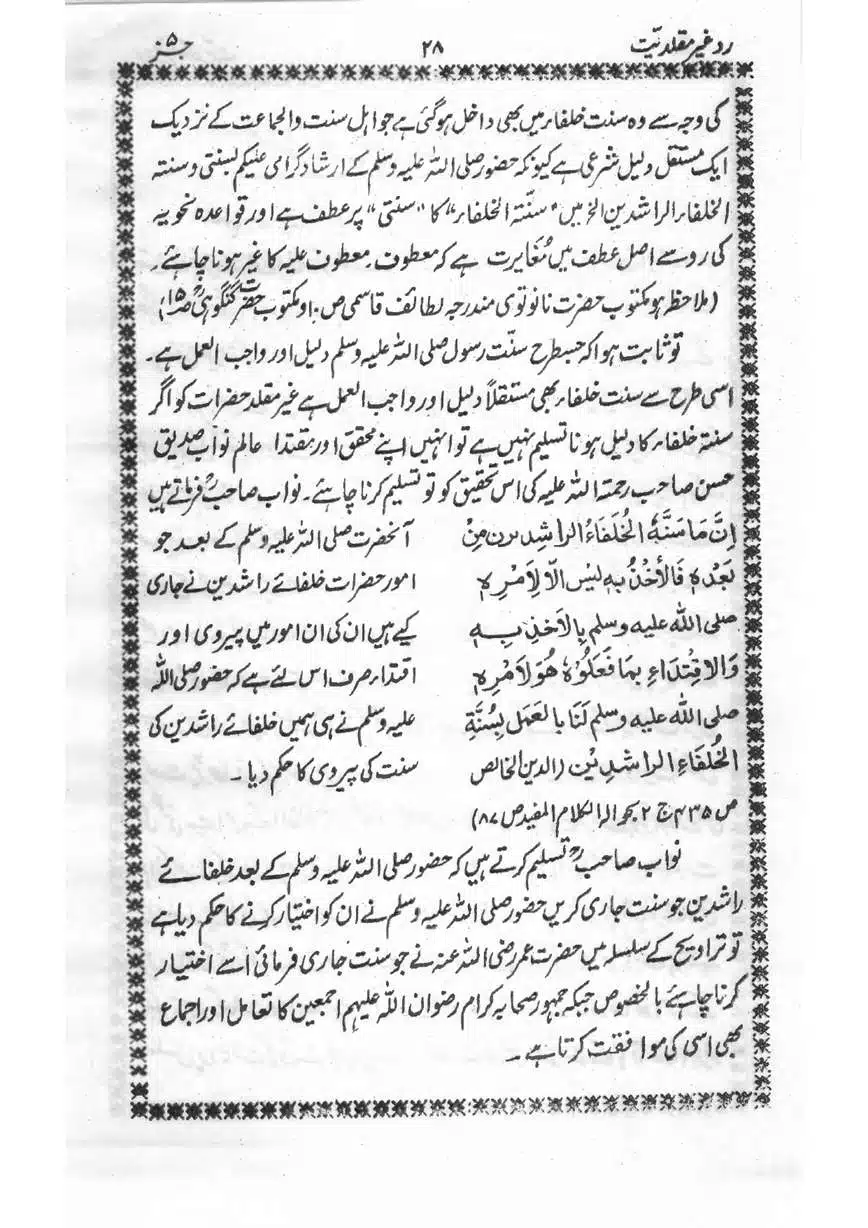 رد غیر مقلدیّت ۲۸ جز ۵
کی وجہ سے وہ سنت خلفاء میں بھی داخل ہو گئی ہے جو اہل سنت والجماعت کے نزدیک
ایک مستقل دلیل شرعی ہے کیونکہ حضور صلی اللہ علیہ وسلم کے ارشاد گرامی علیکم بسنتی و سنتہ
الخلفاء الراشدین الخ میں "سنّتہ الخلفاء" کا "سنتی" پر عطف ہے اور قواعدہ نحویہ
کی رو سے اصل عطف میں مُغایرت ہے کہ معطوف۔ معطوف علیہ کا غیر ہونا چاہئے۔
(ملاحظہ ہو مکتوب حضرت نانوتوی مندرجہ لطائف قاسمی ص۱۰ و مکتوب حضرت گنگوہیؒ ص۱۵)
تو ثابت ہوا کہ جسطرح سنّت رسول صلی اللہ علیہ وسلم دلیل اور واجب العمل ہے۔
اسی طرح سے سنت خلفاء بھی مستقلاً دلیل اور واجب العمل ہے غیر مقلد حضرات کو اگر
سنتہ خلفاء کا دلیل ہونا تسلیم نہیں ہے تو انہیں اپنے محقق اور مقتدا عالم نواب صدیق
حسن صاحب رحمتہ اللہ علیہ کی اس تحقیق کو تو تسلیم کرنا چاہئے۔ نواب صاحبؒ فرماتے ہیں
اِنَّ مَا سَنَّهُ الْخُلَفَاءُ الراشِدونَ مِنْ
بَعْدِہٖ فَالْاَخْذُ بِہٖ لیسَ اِلّاَ لِاَمْرِہٖ
صلی اللہ علیہ وسلم بِالْاَخْذِ بِہٖ
وَالْاِقْتِدَاءِ بِمَا فَعَلُوْہُ ھُوَ لِاَمْرِہٖ
صلی اللہ علیہ وسلم لَنَا بِالعَمَلِ بِسُنَّةِ
الْخُلَفَاءِ الراشِدِیْنَ (الدین الخالص
ص۴۳۵ ج ۲ بحوالہ الکلام المفید ص۸۷)
آنحضرت صلی اللہ علیہ وسلم کے بعد جو
امور حضرات خلفائے راشدین نے جاری
کیے ہیں ان کی ان امور میں پیروی اور
اقتداء صرف اس لئے ہے کہ حضور صلی اللہ
علیہ وسلم نے ہی ہمیں خلفائے راشدین کی
سنت کی پیروی کا حکم دیا۔
نواب صاحبؒ تسلیم کرتے ہیں کہ حضور صلی اللہ علیہ وسلم کے بعد خلفائے
راشدین جو سنت جاری کریں حضور صلی اللہ علیہ وسلم نے ان کو اختیار کرنے کا حکم دیا ہے
تو تراویح کے سلسلہ میں حضرت عمر رضی اللہ عنہ نے جو سنت جاری فرمائی اسے اختیار
کرنا چاہئے بالخصوص جبکہ جمہور صحابہ کرام رضوان اللہ علیہم اجمعین کا تعامل اور اجماع
بھی اسی کی موافقت کرتا ہے۔